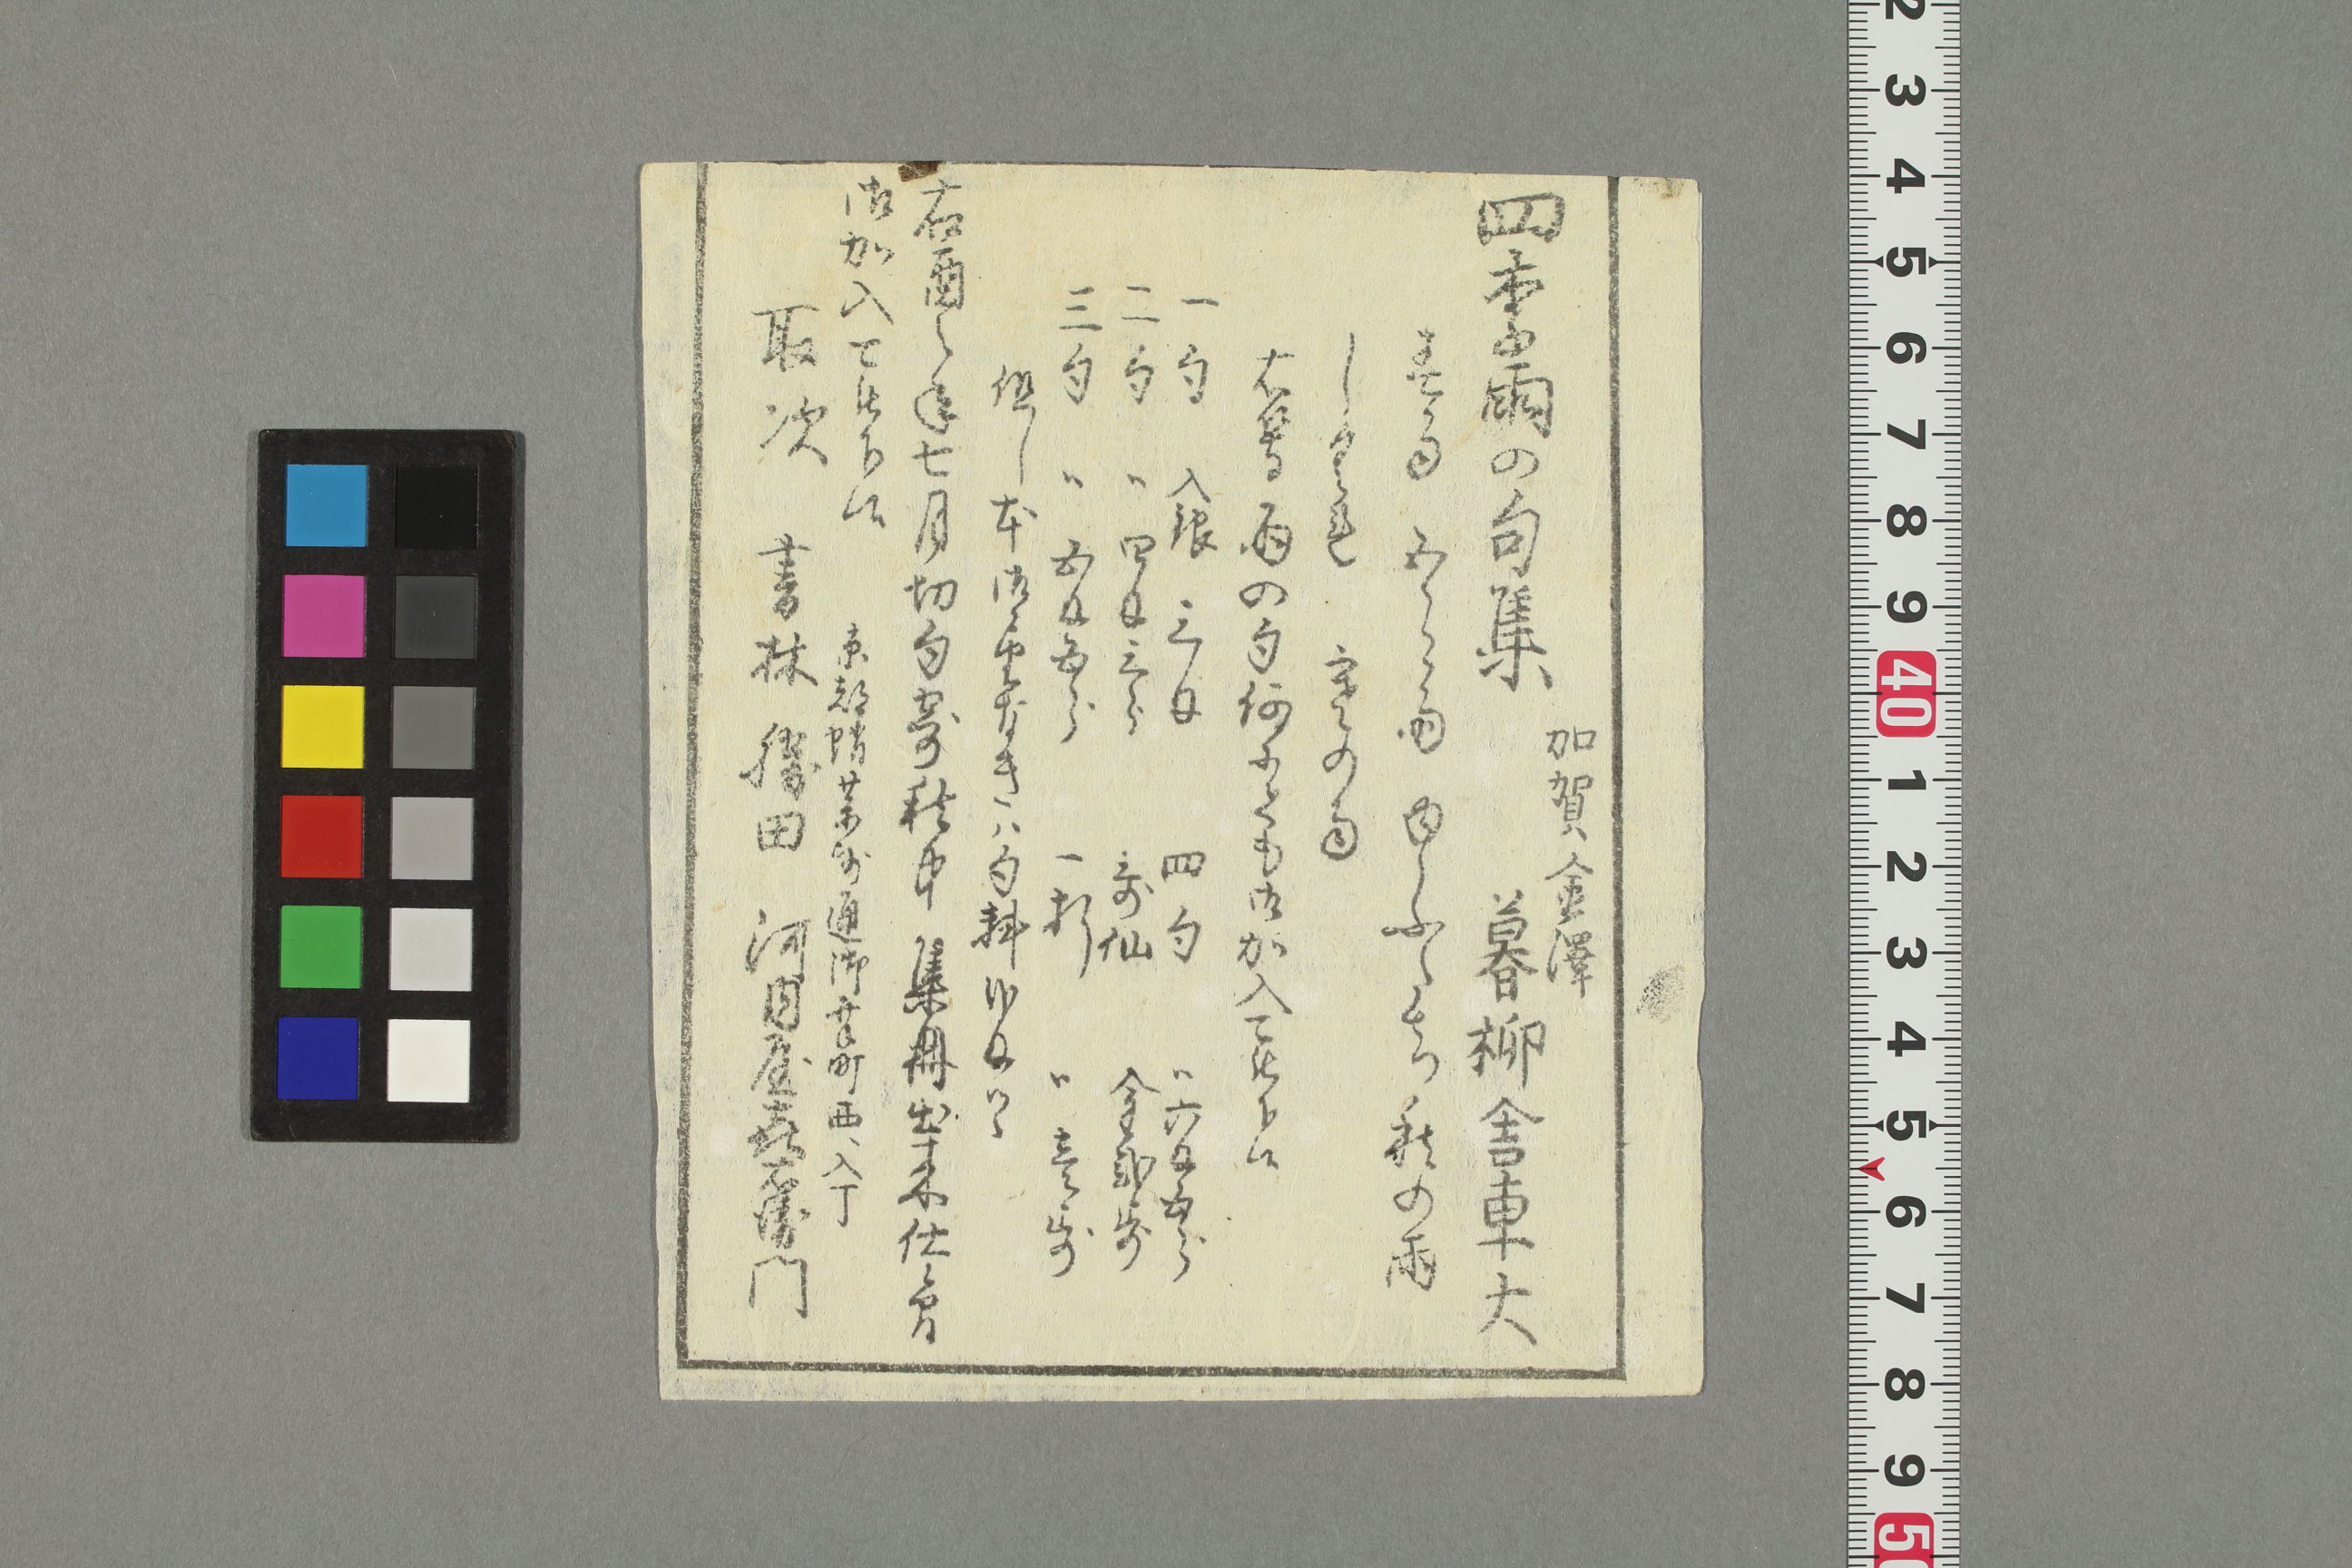 四季雨の句集
加賀金澤
暮柳舎車大
春雨 五月雨 ゆふたち 秋の雨
しくれ 雪の雨
右等雨の句何句にても御加入可被下候
一句 入銀 三匁
四句 〃 六匁五分
二句 〃 四匁三分
歌仙 金弐歩
三句 〃 五匁五分
一折 〃 壱歩
但し本御望なきハ句料
右酉之年七月切句寄秋中集冊出来仕候間
御加入可被下候
京都蛸薬師通御幸町西へ入丁
取次 書林 勝田 河内屋喜兵衛門
2 3 4 5 6 7 8 9 40 1 2 3 4 5 6 7 8 9 50